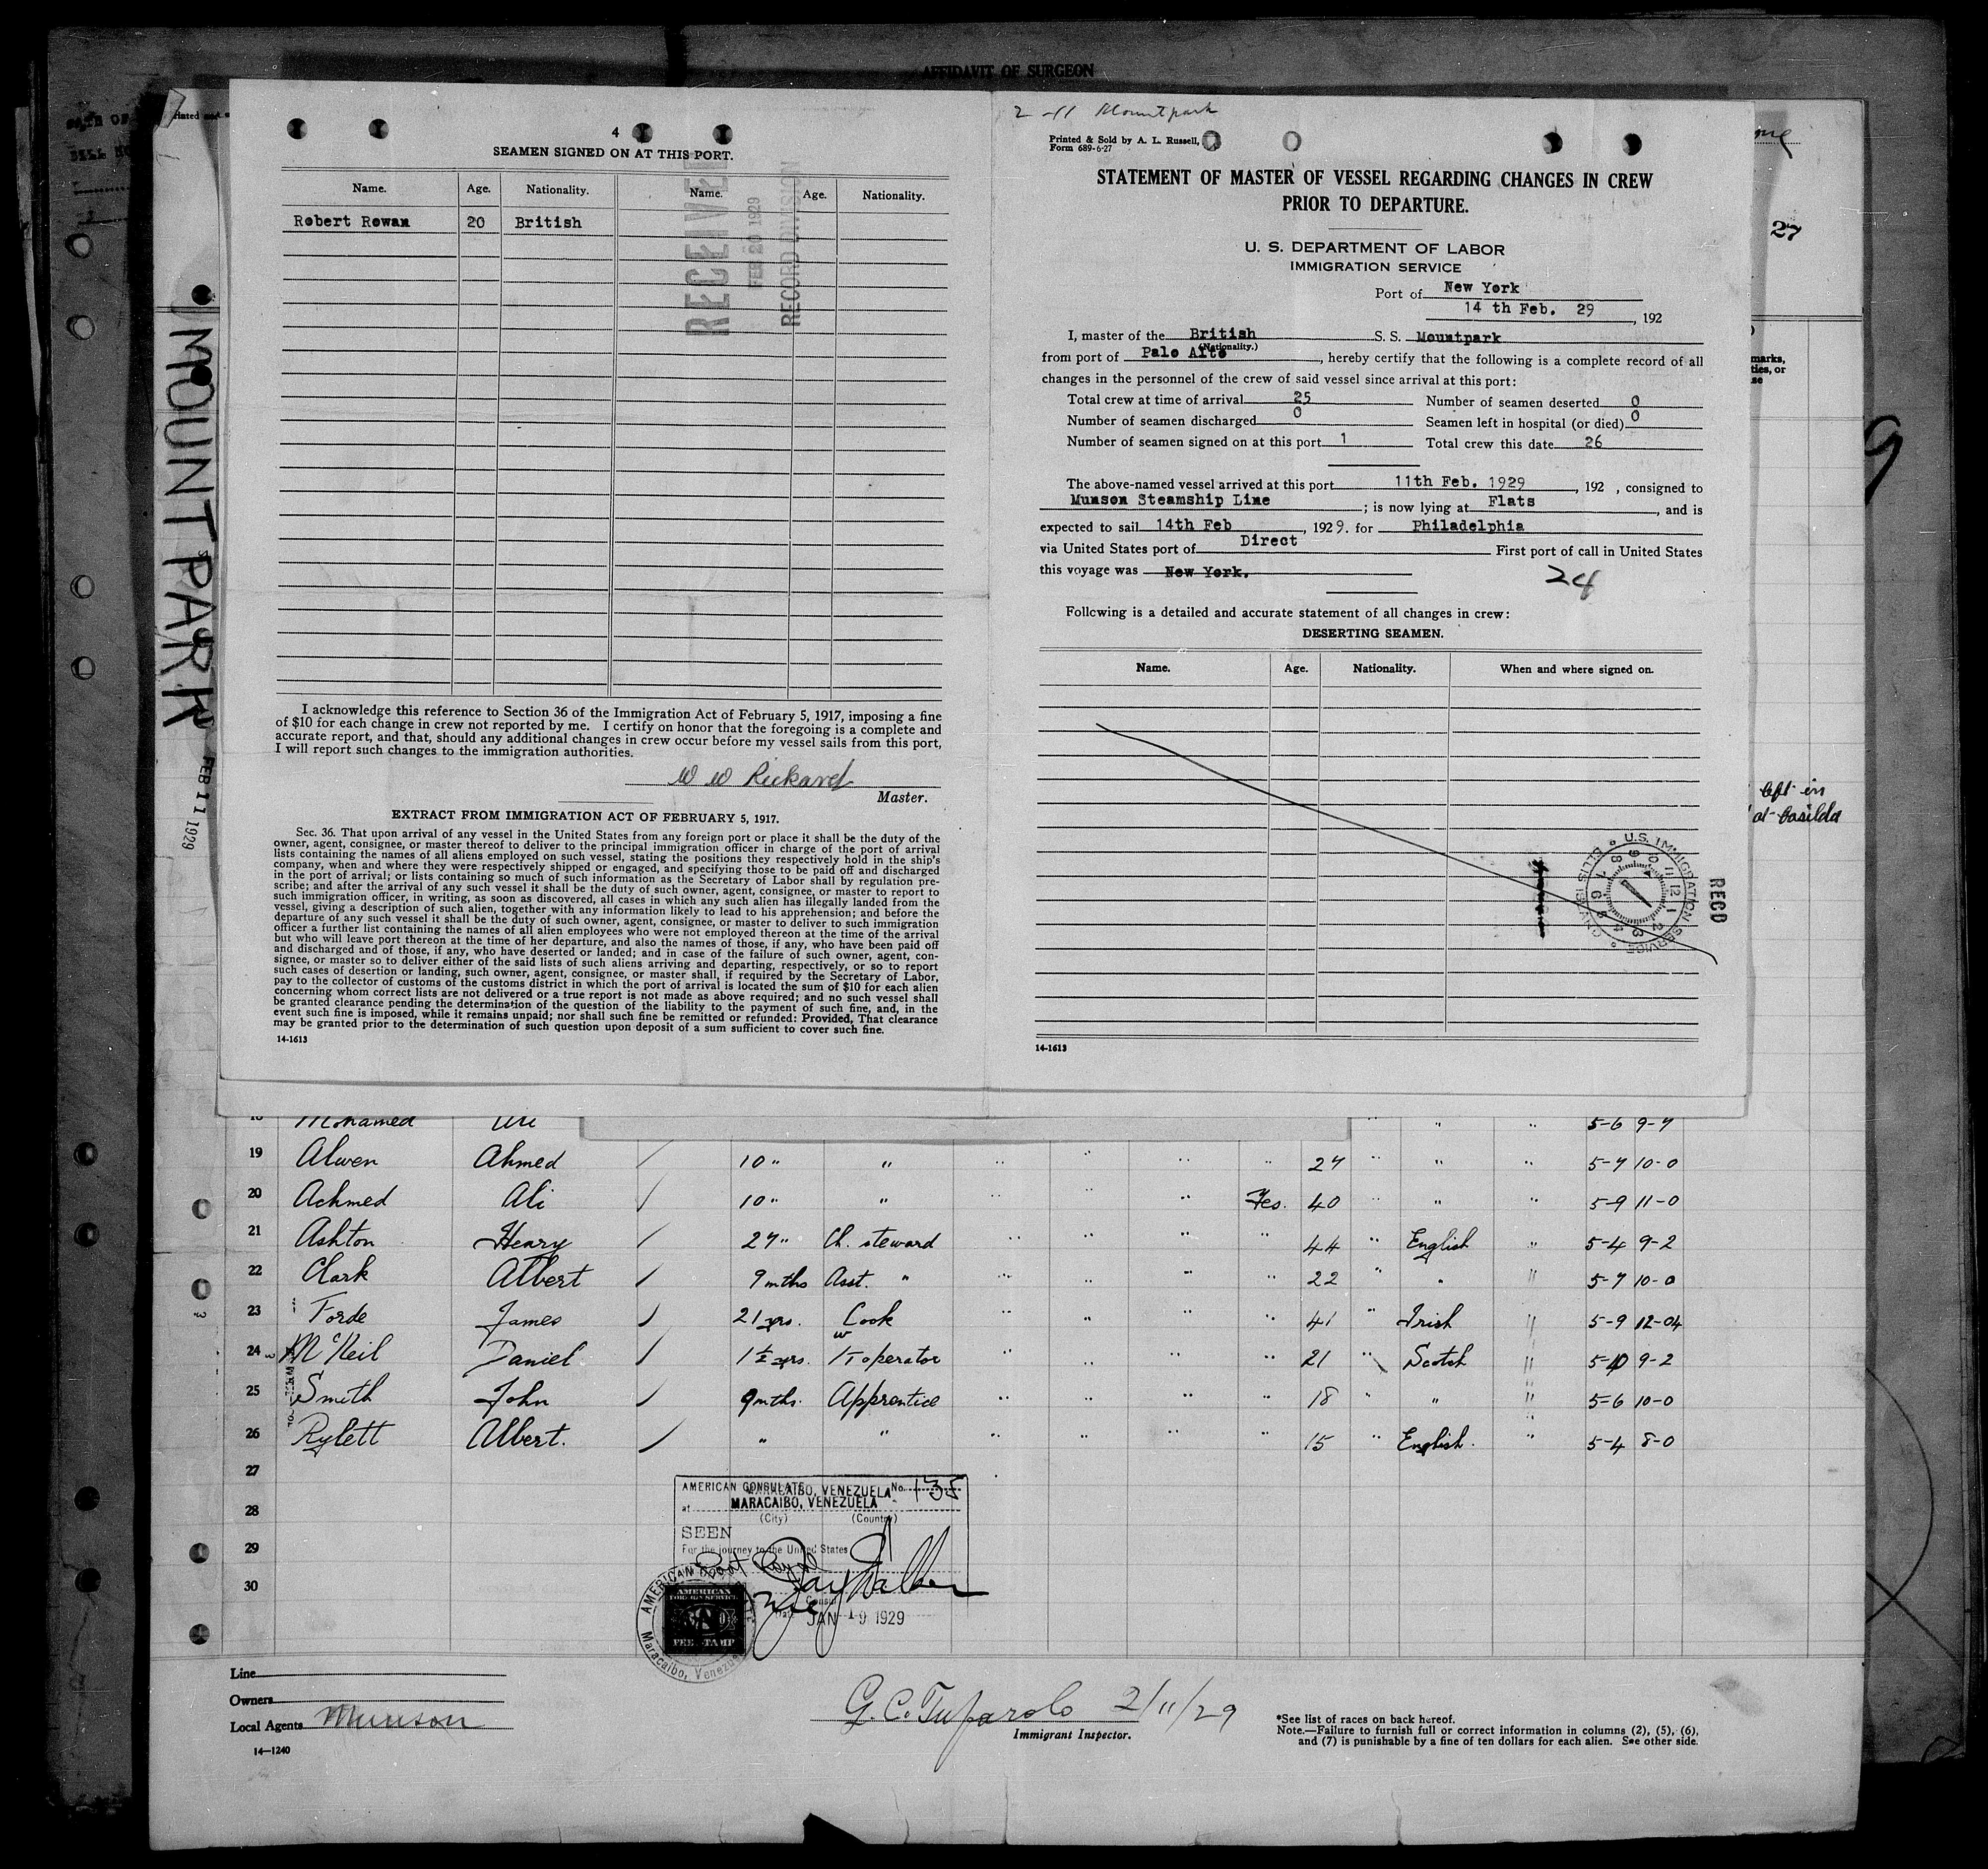 AFFIDAVIT OF SURGEON
4
SEAMEN SIGNED ON AT THIS PORT.
Name. Age. Nationality. Name. Age. Nationality.
Robert Rowan 20 British
RECEIVED
FEB 20 1929
RECORD DIVISION
I acknowledge this reference to Section 36 of the Immigration Act of February 5, 1917, imposing a fine
of $10 for each change in crew not reported by me. I certify on honor that the foregoing is a complete and
accurate report, and that, should any additional changes in crew occur before my vessel sails from this port,
I will report such changes to the immigration authorities.
W W Rickard
Master.
EXTRACT FROM IMMIGRATION ACT OF FEBRUARY 5, 1917.
Sec. 36. That upon arrival of any vessel in the United States from any foreign port or place it shall be the duty of the
owner, agent, consignee, or master thereof to deliver to the principal immigration officer in charge of the port of arrival
lists containing the names of all aliens employed on such vessel, stating the positions they respectively hold in the ship's
company, when and where they were respectively shipped or engaged, and specifying those to be paid off and discharged
in the port of arrival; or lists containing so much of such information as the Secretary of Labor shall by regulation pre-
scribe; and after the arrival of any such vessel it shall be the duty of such owner, agent, consignee, or master to report to
such immigration officer, in writing, as soon as discovered, all cases in which any such alien has illegally landed from the
vessel, giving a description of such alien, together with any information likely to lead to his apprehension; and before the
departure of any such vessel it shall be the duty of such owner, agent, consignee, or master to deliver to such immigration
officer a further list containing the names of all alien employees who were not employed thereon at the time of the arrival
but who will leave port thereon at the time of her departure, and also the names of those, if any, who have been paid off
and discharged and of those, if any, who have deserted or landed; and in case of the failure of such owner, agent, con-
signee, or master so to deliver either of the said lists of such aliens arriving and departing, respectively, or so to report
such cases of desertion or landing, such owner, agent, consignee, or master shall, if required by the Secretary of Labor,
pay to the collector of customs of the customs district in which the port of arrival is located the sum of $10 for each alien
concerning whom correct lists are not delivered or a true report is not made as above required; and no such vessel shall
be granted clearance pending the determination of the question of the liability to the payment of such fine, and, in the
event such fine is imposed, while it remains unpaid; nor shall such fine be remitted or refunded: Provided, That clearance
may be granted prior to the determination of such question upon deposit of a sum sufficient to cover such fine.
14-1613
2-11 Mountpark
Printed & Sold by A. L. Russell,
Form 689-6-27
STATEMENT OF MASTER OF VESSEL REGARDING CHANGES IN CREW
PRIOR TO DEPARTURE.
U. S. DEPARTMENT OF LABOR
IMMIGRATION SERVICE
Port of New York
14 th Feb. 29, 192
I, master of the British S. S. Mountpark
(Nationality.)
from port of Palo Alto, hereby certify that the following is a complete record of all
changes in the personnel of the crew of said vessel since arrival at this port:
Total crew at time of arrival 25 Number of seamen deserted 0
Number of seamen discharged 0 Seamen left in hospital (or died) 0
Number of seamen signed on at this port 1 Total crew this date 26
The above-named vessel arrived at this port 11th Feb. 1929, 192 , consigned to
Munson Steamship Line; is now lying at Flats, and is
expected to sail 14th Feb, 1929. for Philadelphia
via United States port of Direct First port of call in United States
this voyage was New York.
24
Following is a detailed and accurate statement of all changes in crew:
DESERTING SEAMEN.
Name. Age. Nationality. When and where signed on.
U.S. IMMIGRATION SERVICE ELLIS ISLAND, N.Y.
RECD
14-1613
MOUNT PARK
FEB 11 1929
27
marks,
ties, or
se
left in
at Casilda
9
18 Mohamed Ali " " 5-6 9-7
19 Alwen Ahmed / 10 " " " " " " 27 " " " 5-7 10-0
20 Achmed Ali / 10 " " " " " Yes. 40 " " " 5-9 11-0
21 Ashton Henry / 27 " Ch. steward " " " " 44 " English " 5-4 9-2
22 Clark Albert / 9 mths Asst. " " " " " 22 " " " 5-7 10-0
23 Forde James / 21 yrs. Cook " " " " 41 " Irish " 5-9 12-04
24 McNeil Daniel / 1½ yrs. W/T operator " " " " 21 " Scotch " 5-10 9-2
25 Smith John / 9 mths. Apprentice " " " " 18 " " " 5-6 10-0
26 Rylett Albert. / " " " " " " 15 " English. " 5-4 8-0
27
28
29
30
AMERICAN CONSULATE No. 135
at MARACAIBO, VENEZUELA
(City) (Country)
SEEN
For the journey to the United States
Consul
JAN 19 1929
AMERICAN FOREIGN SERVICE
FEE STAMP
Maracaibo, Venezuela
Line
Owners
Local Agents Munson
14—1240
2/11/29
Immigrant Inspector.
*See list of races on back hereof.
Note.—Failure to furnish full or correct information in columns (2), (5), (6),
and (7) is punishable by a fine of ten dollars for each alien. See other side.